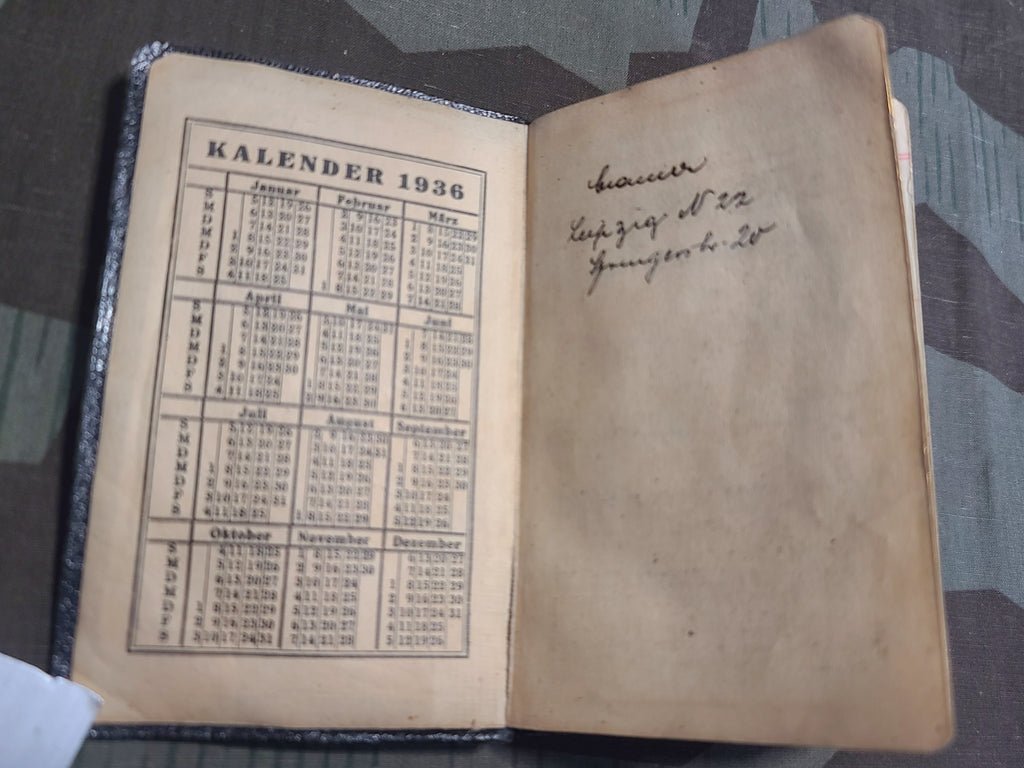 KALENDER 1936
Januar Februar März
S 5 12 19 26 2 9 16 23 1 8 15 22 29
M 6 13 20 27 3 10 17 24 2 9 16 23 30
D 7 14 21 28 4 11 18 25 3 10 17 24 31
M 1 8 15 22 29 5 12 19 26 4 11 18 25
D 2 9 16 23 30 6 13 20 27 5 12 19 26
F 3 10 17 24 31 7 14 21 28 6 13 20 27
S 4 11 18 25 1 8 15 22 29 7 14 21 28
April Mai Juni
S 5 12 19 26 3 10 17 24 31 7 14 21 28
M 6 13 20 27 4 11 18 25 1 8 15 22 29
D 7 14 21 28 5 12 19 26 2 9 16 23 30
M 1 8 15 22 29 6 13 20 27 3 10 17 24
D 2 9 16 23 30 7 14 21 28 4 11 18 25
F 3 10 17 24 1 8 15 22 29 5 12 19 26
S 4 11 18 25 2 9 16 23 30 6 13 20 27
Juli August September
S 5 12 19 26 2 9 16 23 30 6 13 20 27
M 6 13 20 27 3 10 17 24 31 7 14 21 28
D 7 14 21 28 4 11 18 25 1 8 15 22 29
M 1 8 15 22 29 5 12 19 26 2 9 16 23 30
D 2 9 16 23 30 6 13 20 27 3 10 17 24
F 3 10 17 24 31 7 14 21 28 4 11 18 25
S 4 11 18 25 1 8 15 22 29 5 12 19 26
Oktober November Dezember
S 4 11 18 25 1 8 15 22 29 6 13 20 27
M 5 12 19 26 2 9 16 23 30 7 14 21 28
D 6 13 20 27 3 10 17 24 1 8 15 22 29
M 7 14 21 28 4 11 18 25 2 9 16 23 30
D 1 8 15 22 29 5 12 19 26 3 10 17 24 31
F 2 9 16 23 30 6 13 20 27 4 11 18 25
S 3 10 17 24 31 7 14 21 28 5 12 19 26
Leipzig N 22
Springerstr. 20